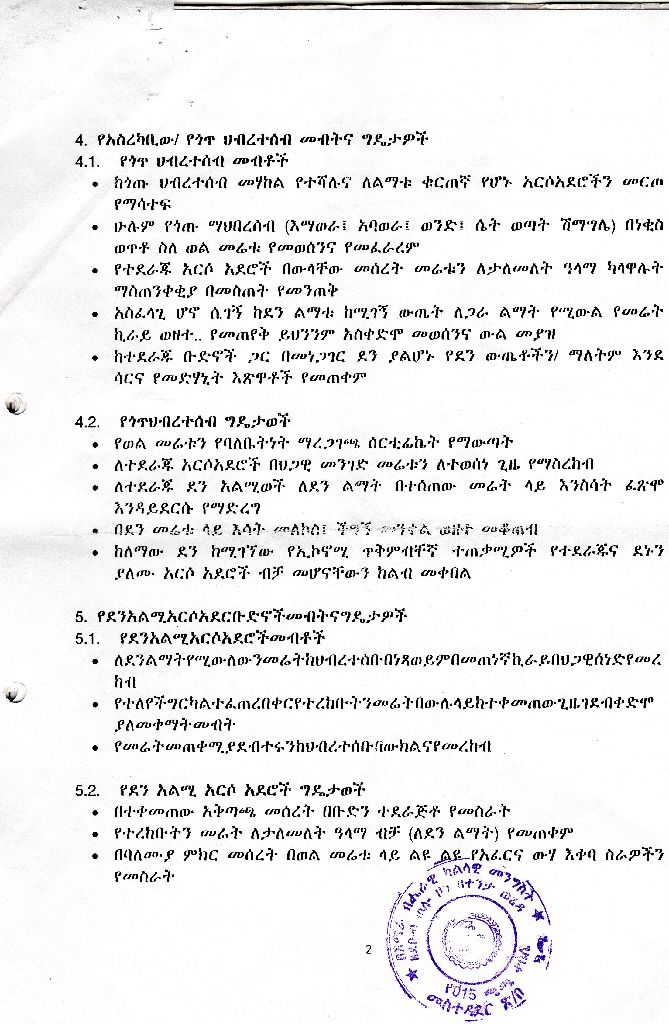 4. የአስረካቢው/ የጎጥ ህብረተሰብ መብትና ግዴታዎች
4.1. የጎጥ ህብረተሰብ መብቶች
• ከጎጡ ህብረተሰብ መሃከል የተሻሉና ለልማቱ ቁርጠኛ የሆኑ አርሶአደሮችን መርጦ
የማሳተፍ
• ሁሉም የጎጡ ማህበረሰብ (እማወራ፤ አባወራ፤ ወንድ፤ ሴት ወጣት ሽማግሌ) በነቂስ
ወጥቶ ስለ ወል መሬቱ የመወሰንና የመፈራረም
• የተደራጁ አርሶ አደሮች በውላቸው መሰረት መሬቱን ለታለመለት ዓላማ ካላዋሉት
ማስጠንቀቂያ በመስጠት የመንጠቅ
• አስፈላጊ ሆኖ ሲገኝ ከደን ልማቱ ከሚገኝ ውጤት ለጋራ ልማት የሚውል የመሬት
ኪራይ ወዘተ.. የመጠየቅ ይህንንም አስቀድሞ መወሰንና ውል መያዝ
• ከተደራጁ ቡድኖች ጋር በመነጋገር ደን ያልሆኑ የደን ውጤቶችን/ ማለትም እንደ
ሳርና የመድሃኒት እጽዋቶች የመጠቀም
4.2. የጎጥህብረተሰብ ግዴታወች
• የወል መሬቱን የባለቤትነት ማረጋገጫ ሰርቲፊኬት የማውጣት
• ለተደራጁ አርሶአደሮች በህጋዊ መንገድ መሬቱን ለተወሰነ ጊዜ የማስረከብ
• ለተደራጁ ደን አልሚወች ለደን ልማት በተሰጠው መሬት ላይ እንስሳት ፈጽሞ
እንዳይደርሱ የማድረግ
• በደን መሬቱ ላይ እሳት መለኮስ፤ ችግኝ መንቀል ወዘተ መቆጠብ
• ከለማው ደን ከሚገኘው የኢኮኖሚ ጥቅምብቸኛ ተጠቃሚዎች የተደራጁና ደኑን
ያለሙ አርሶ አደሮች ብቻ መሆናቸውን ከልብ መቀበል
5. የደንአልሚአርሶአደርቡድኖችመብትናግዴታዎች
5.1. የደንአልሚአርሶአደሮችመብቶች
• ለደንልማትየሚውለውንመሬትከህብረተሰቡበነጻወይምበመጠነኛኪራይበህጋዊሰነድየመረ
ከብ
• የተለየችግርካልተፈጠረበቀርየተረከቡትንመሬትበውሉላይከተቀመጠውጊዜገደብቀድሞ
ያለመቀማትመብት
• የመሬትመጠቀሚያደብተሩንከህብረተሰቡባውክልናየመረከብ
5.2. የደን አልሚ አርሶ አደሮች ግዴታወች
• በተቀመጠው አቅጣጫ መሰረት በቡድን ተደራጅቶ የመስራት
• የተረከቡትን መሬት ለታለመለት ዓላማ ብቻ (ለደን ልማት) የመጠቀም
• በባለሙያ ምክር መሰረት በወል መሬቱ ላይ ልዩ ልዩ የአፈርና ውሃ እቀባ ስራዎችን
የመስራት
2
በአማራ ብሔራዊ ክልላዊ መንግስት
የ015
መስተዳድር ጽ/ቤ